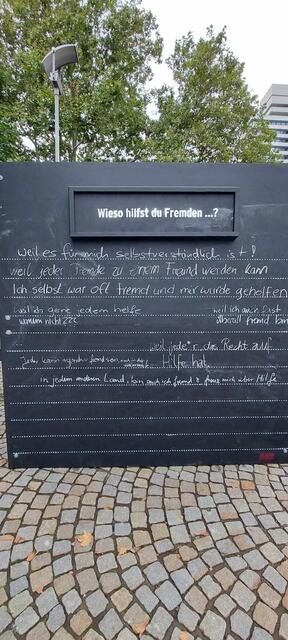 Wieso hilfst du Fremden ...?
weil es für mich selbstverständlich ist!
weil jeder Fremde zu einem Freund werden kann
Ich selbst war oft fremd und mir wurde geholfen
weil ich gerne jedem helfe
warum nicht???
weil ich auch fast
überall fremd bin
weil jede*r das Recht auf
Hilfe hat
Jeder kann
in jedem anderen Land, bin auch ich fremd & freue mich über Hilfe